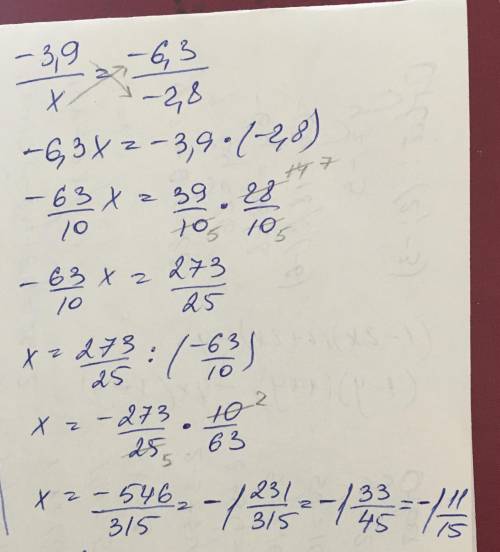 -3,9/x = -6,3/-2,8
-6,3x = -3,9 · (-2,8)
-63/10 x = 39/10 5 · 28 14 7/10 5
-63/10 x = 273/25
x = 273/25 : (-63/10)
x = -273/25 5 · 10 2/63
x = -546/315 = -1 231/315 = -1 33/45 = -1 11/15